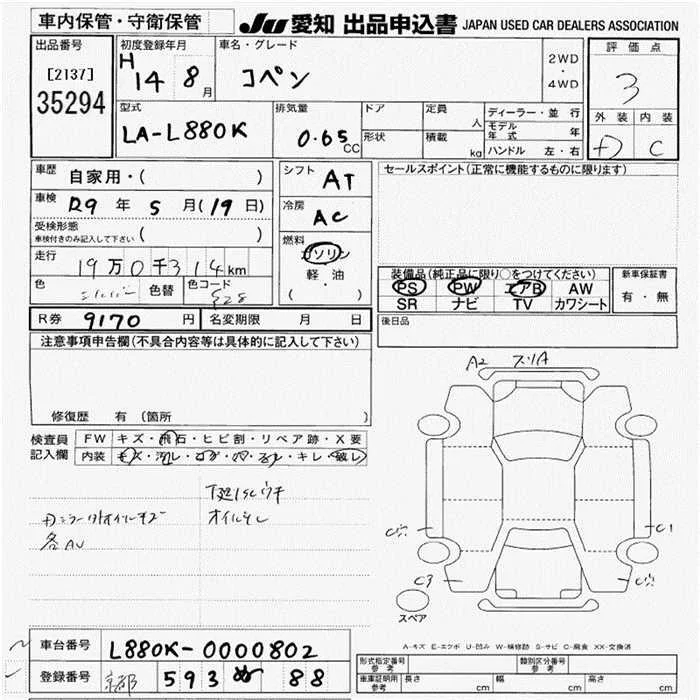 車内保管・守衛保管
JU 愛知 出品申込書 JAPAN USED CAR DEALERS ASSOCIATION
出品番号
[2137]
35294
初度登録年月
H 14 8月
車名・グレード
コペン
2WD
・
4WD
評価点
3
外装 内装
D C
型式
LA-L880K
排気量
0.65 CC
ドア
形状
定員 人
積載 kg
ディーラー・並行
モデル年式 年
ハンドル 左・右
車歴 自家用・( )
車検 R9年 5月(19日)
受検形態
車検付きのみ記入して下さい ( )
走行 19万0千314km
色 シルバー 色替 色コード S28
シフト AT
冷房 AC
燃料
ガソリン
軽・油
( )
セールスポイント(正常に機能するものに限ります)
装備品(純正品に限り○をつけてください)
PS PW エアB AW
SR ナビ TV カワシート
新車保証書
有・無
R券 9170円 名変期限 月 日
後日品
注意事項申告欄(不具合内容等は具体的に記入して下さい)
修復歴 有(箇所 )
検査員記入欄
FW キズ・飛石・ヒビ割・リペア跡・X要
内装 キズ・汚レ・コゲ・穴・スレ・キレ・破レ
オイルモレ
A2 スリA
C1
C3
スペア
A-キズ E-エクボ U-凹み W-補修跡 S-サビ C-腐食 XX-交換済
車台番号 L880K-0000802
登録番号 京都 593 ぬ 88
形式指定番号 参考
類別区分番号 参考
車庫証明用 参考 長さ cm 幅 cm 高さ cm